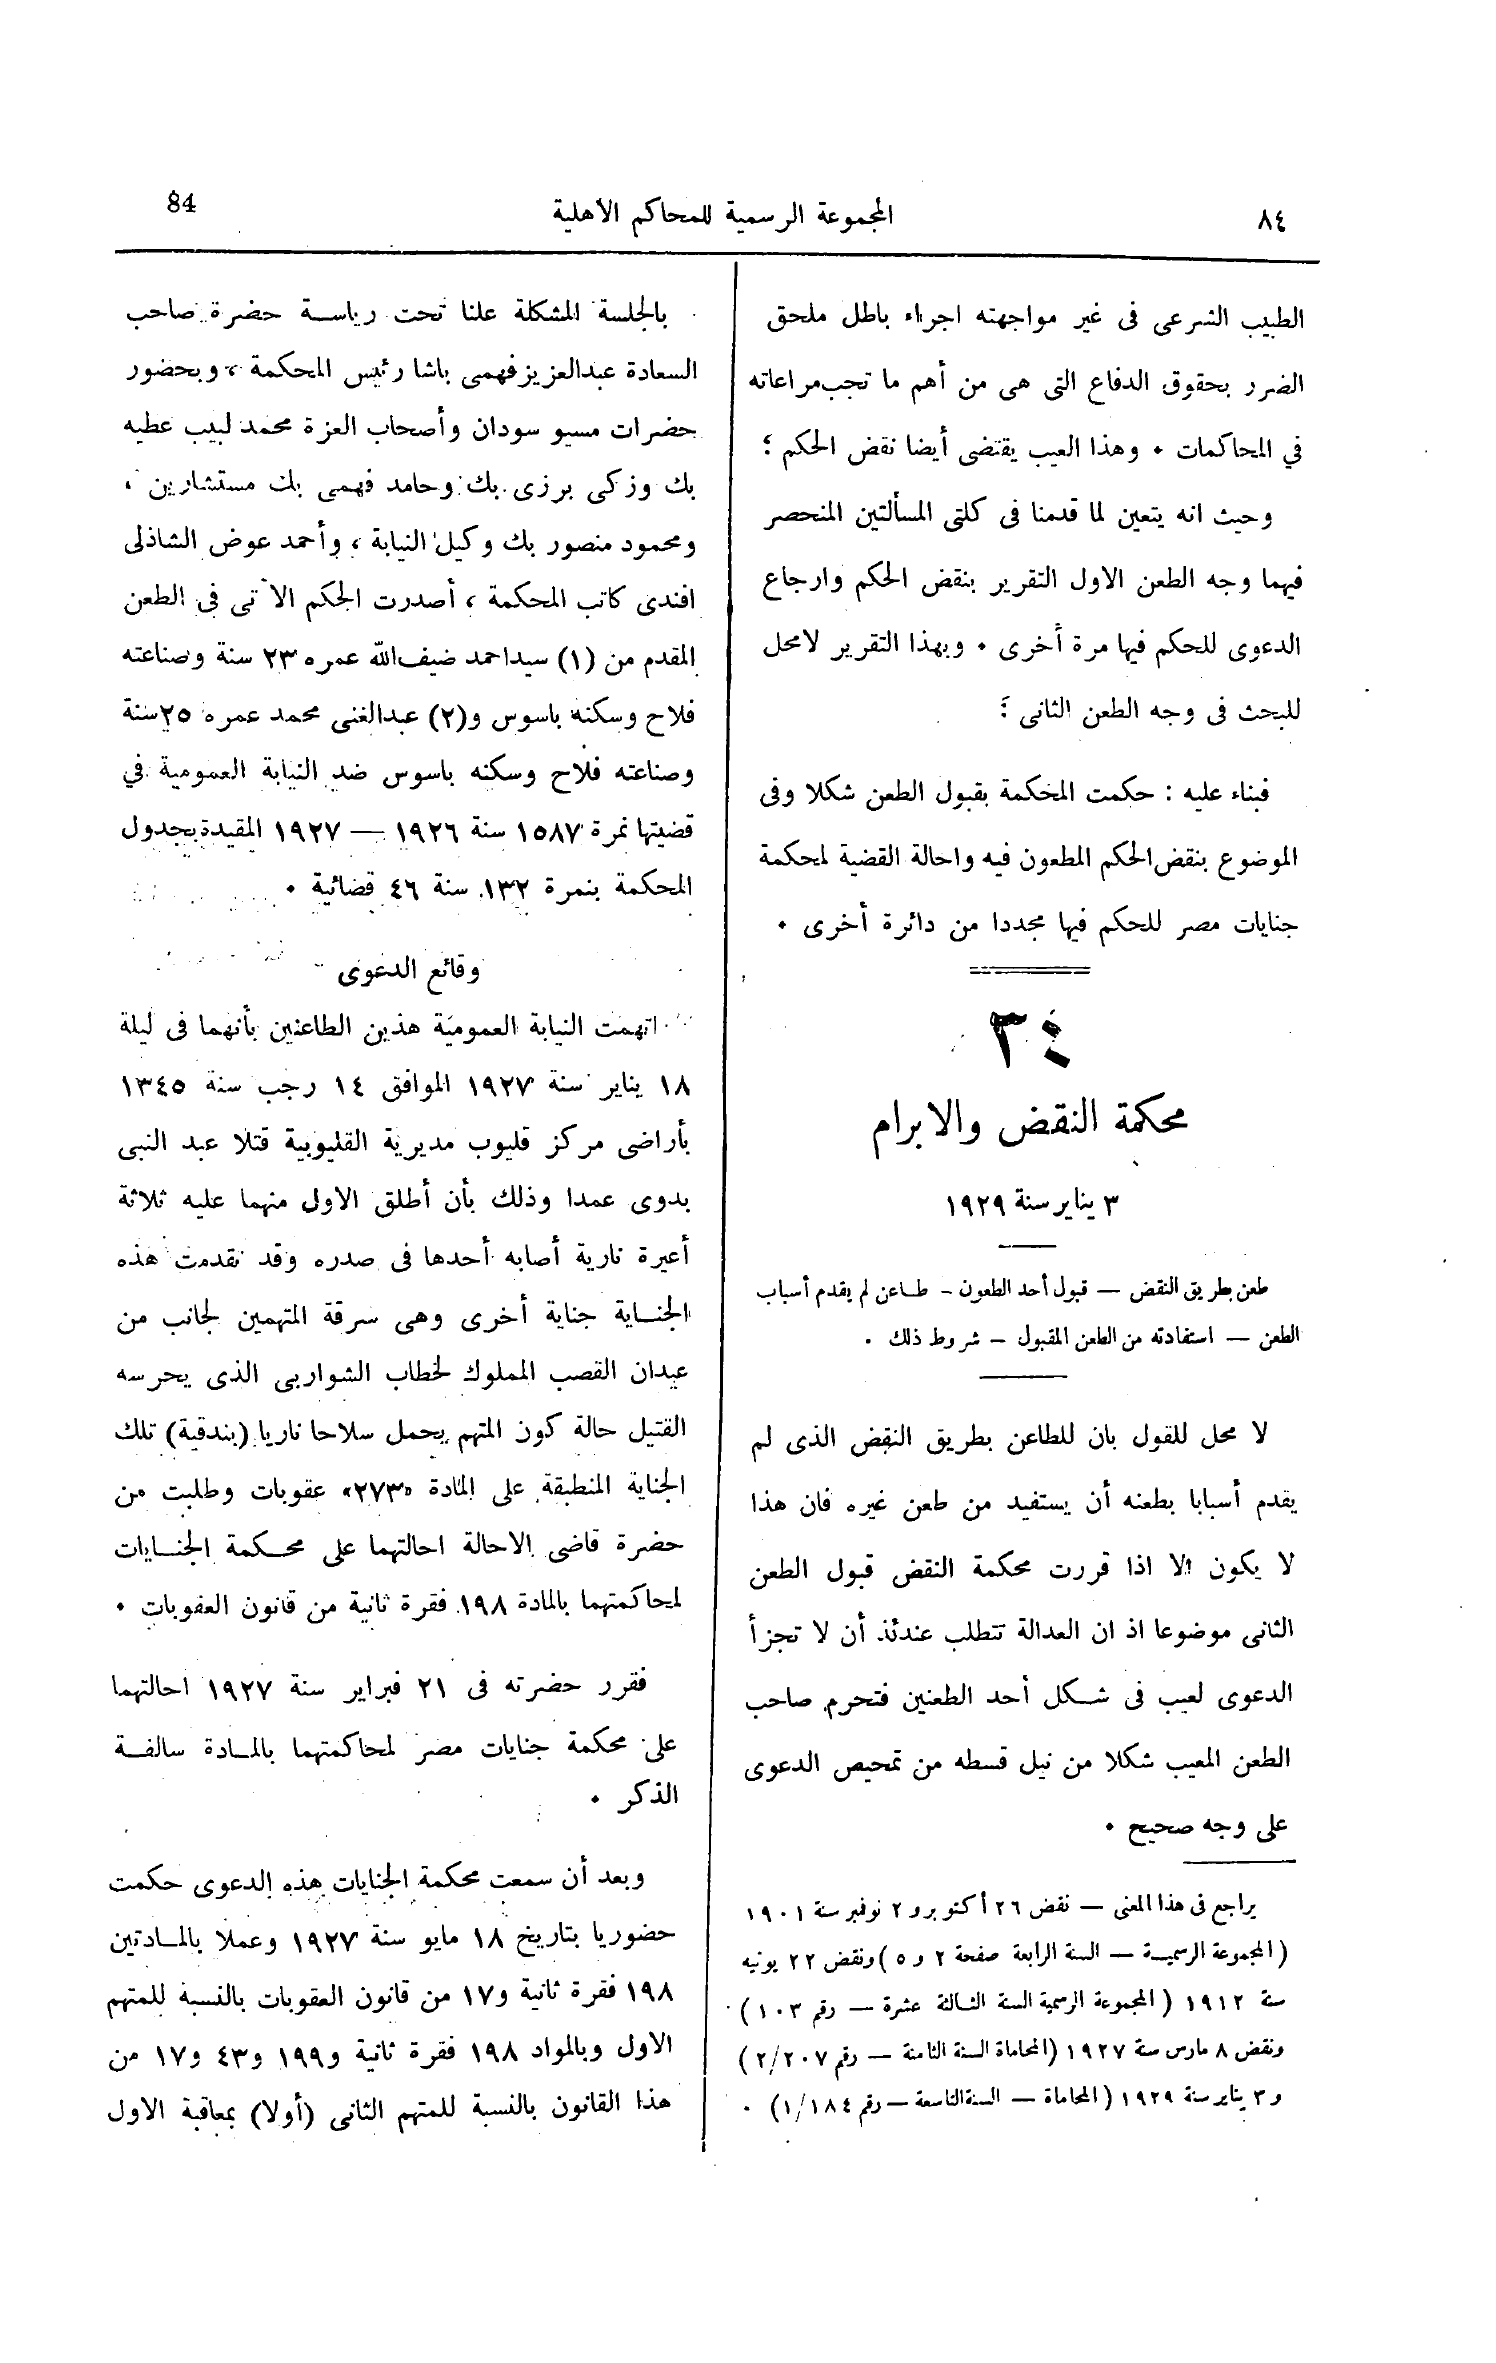 ٨٤
المجموعة الرسمية للمحاكم الاهلية
84
الطبيب الشرعى فى غير مواجهته اجراء باطل ملحق
الضرر بحقوق الدفاع التى هى من أهم ما تجب مراعاته
في المحاكمات ٠ وهذا العيب يقتضى أيضا نقض الحكم ؛
وحيث انه يتعين لما قدمنا فى كلتى المسألتين المنحصر
فيهما وجه الطعن الاول التقرير بنقض الحكم وارجاع
الدعوى للحكم فيها مرة أخرى ٠ وبهذا التقرير لامحل
للبحث فى وجه الطعن الثانى ؛
فبناء عليه : حكمت المحكمة بقبول الطعن شكلا وفى
الموضوع بنقض الحكم المطعون فيه واحالة القضية لمحكمة
جنايات مصر للحكم فيها مجددا من دائرة أخرى ٠
٣٤
محكمة النقض والابرام
٣ يناير سنة ١٩٢٩
طعن بطريق النقض — قبول أحد الطعون — طاعن لم يقدم أسباب
الطعن — استفادته من الطعن المقبول — شروط ذلك ٠
لا محل للقول بان للطاعن بطريق النقض الذى لم
يقدم أسبابا بطعنه أن يستفيد من طعن غيره فان هذا
لا يكون الا اذا قررت محكمة النقض قبول الطعن
الثانى موضوعا اذ ان العدالة تتطلب عندئذ أن لا تجزأ
الدعوى لعيب فى شكل أحد الطعنين فتحرم صاحب
الطعن المعيب شكلا من نيل قسطه من تمحيص الدعوى
على وجه صحيح ٠
يراجع فى هذا المعنى — نقض ٢٦ أكتوبر و٢ نوفمبر سنة ١٩٠١
(المجموعة الرسمية — السنة الرابعة صفحة ٢ و٥) ونقض ٢٢ يونيه
سنة ١٩١٢ (المجموعة الرسمية السنة الثالثة عشرة — رقم ١٠٣)
ونقض ٨ مارس سنة ١٩٢٧ (المحاماة السنة الثامنة — رقم ٢/٢٠٧)
و٣ يناير سنة ١٩٢٩ (المحاماة — السنة التاسعة — رقم ١/١٨٤) ٠
بالجلسة المشكلة علنا تحت رياسة حضرة صاحب
السعادة عبدالعزيز فهمى باشا رئيس المحكمة ، وبحضور
حضرات مسيو سودان وأصحاب العزة محمد لبيب عطيه
بك وزكى برزى بك وحامد فهمى بك مستشارين ،
ومحمود منصور بك وكيل النيابة ، وأحمد عوض الشاذلى
افندى كاتب المحكمة ، أصدرت الحكم الآتى فى الطعن
المقدم من (١) سيداحمد ضيف الله عمره ٢٣ سنة وصناعته
فلاح وسكنه باسوس و(٢) عبدالغنى محمد عمره ٢٥ سنة
وصناعته فلاح وسكنه باسوس ضد النيابة العمومية في
قضيتها نمرة ١٥٨٧ سنة ١٩٢٦ — ١٩٢٧ المقيدة بجدول
المحكمة بنمرة ١٣٢ سنة ٤٦ قضائية ٠
وقائع الدعوى
اتهمت النيابة العمومية هذين الطاعنين بأنهما فى ليلة
١٨ يناير سنة ١٩٢٧ الموافق ١٤ رجب سنة ١٣٤٥
بأراضى مركز قليوب مديرية القليوبية قتلا عبد النبى
بدوى عمدا وذلك بأن أطلق الاول منهما عليه ثلاثة
أعيرة نارية أصابه أحدها فى صدره وقد تقدمت هذه
الجناية جناية أخرى وهى سرقة المتهمين لجانب من
عيدان القصب المملوك لخطاب الشواربى الذى يحرسه
القتيل حالة كون المتهم يحمل سلاحا ناريا (بندقية) تلك
الجناية المنطبقة على المادة «٢٧٣» عقوبات وطلبت من
حضرة قاضى الاحالة احالتهما على محكمة الجنايات
لمحاكمتهما بالمادة ١٩٨ فقرة ثانية من قانون العقوبات ٠
فقرر حضرته فى ٢١ فبراير سنة ١٩٢٧ احالتهما
على محكمة جنايات مصر لمحاكمتهما بالمادة سالفة
الذكر ٠
وبعد أن سمعت محكمة الجنايات هذه الدعوى حكمت
حضوريا بتاريخ ١٨ مايو سنة ١٩٢٧ وعملا بالمادتين
١٩٨ فقرة ثانية و١٧ من قانون العقوبات بالنسبة للمتهم
الاول وبالمواد ١٩٨ فقرة ثانية و١٩٩ و٤٣ و١٧ من
هذا القانون بالنسبة للمتهم الثانى (أولا) بمعاقبة الاول